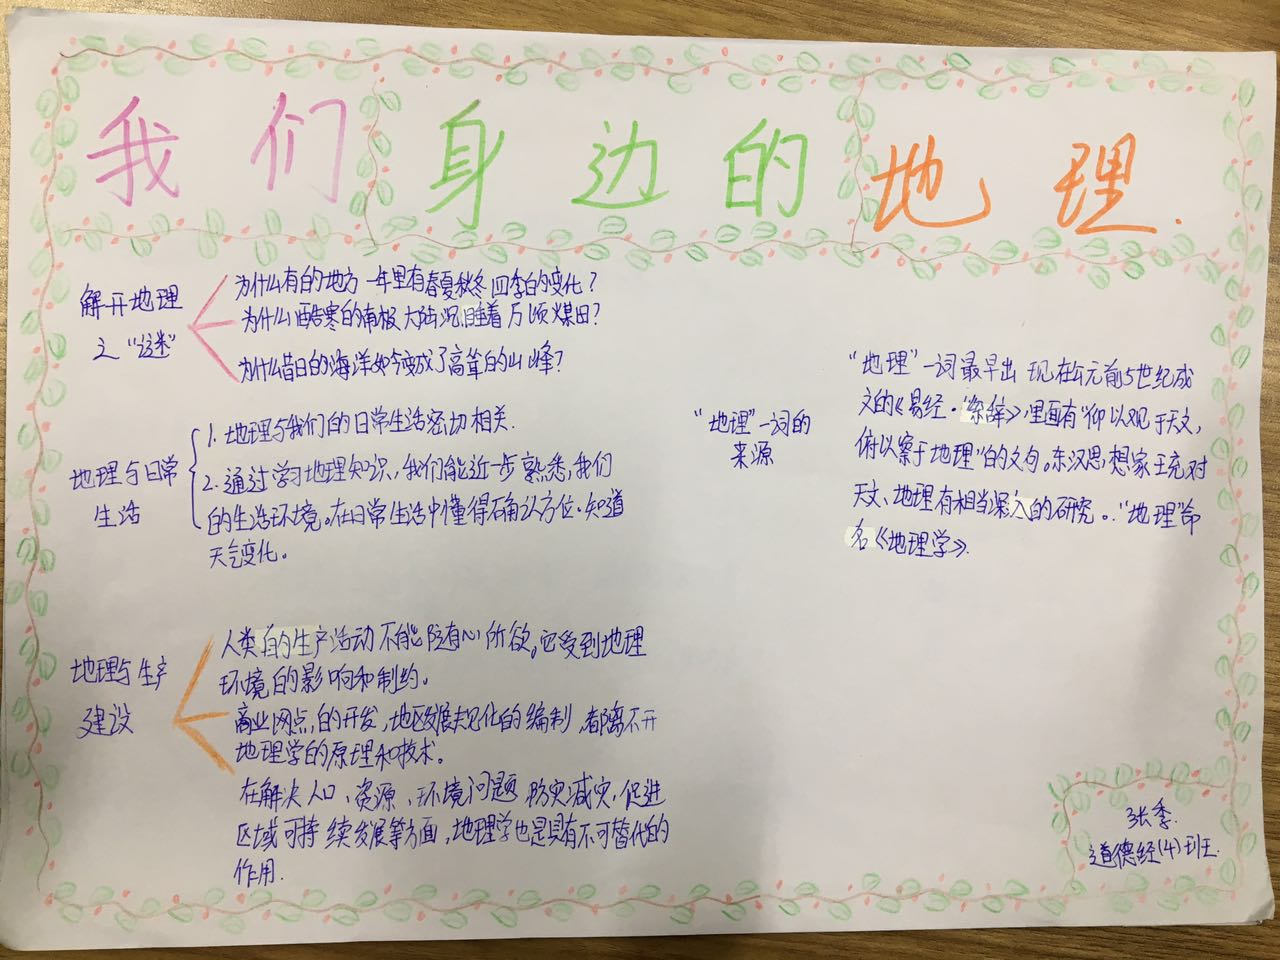 我们身边的地理.
解开地理
之"谜"
为什么有的地方一年里有春夏秋冬四季的变化?
为什么酷寒的南极大陆沉睡着万顷煤田?
为什么昔日的海洋如今变成了高耸的山峰?
地理与日常
生活
1.地理与我们的日常生活密切相关.
2.通过学习地理知识,我们能近一步熟悉,我们
的生活环境。在日常生活中懂得确认方位.知道
天气变化。
地理与生产
建设
人类的生产活动不能随有心所欲,它受到地理
环境的影响和制约。
商业网点的开发,地区发展规化的编制,都离不开
地理学的原理和技术。
在解决人口、资源、环境问题 防灾减灾,促进
区域可持续发展等方面,地理学也是具有不可替代的
作用.
"地理"一词的
来源
"地理"一词最早出现在公元前5世纪成
文的《易经·系辞》,里面有"仰以观于天文,
俯以察于地理"的文句。东汉思想家王充对
天文、地理有相当深入的研究。."地理"命
名《地理学》.
张季.
道德经(4)班.